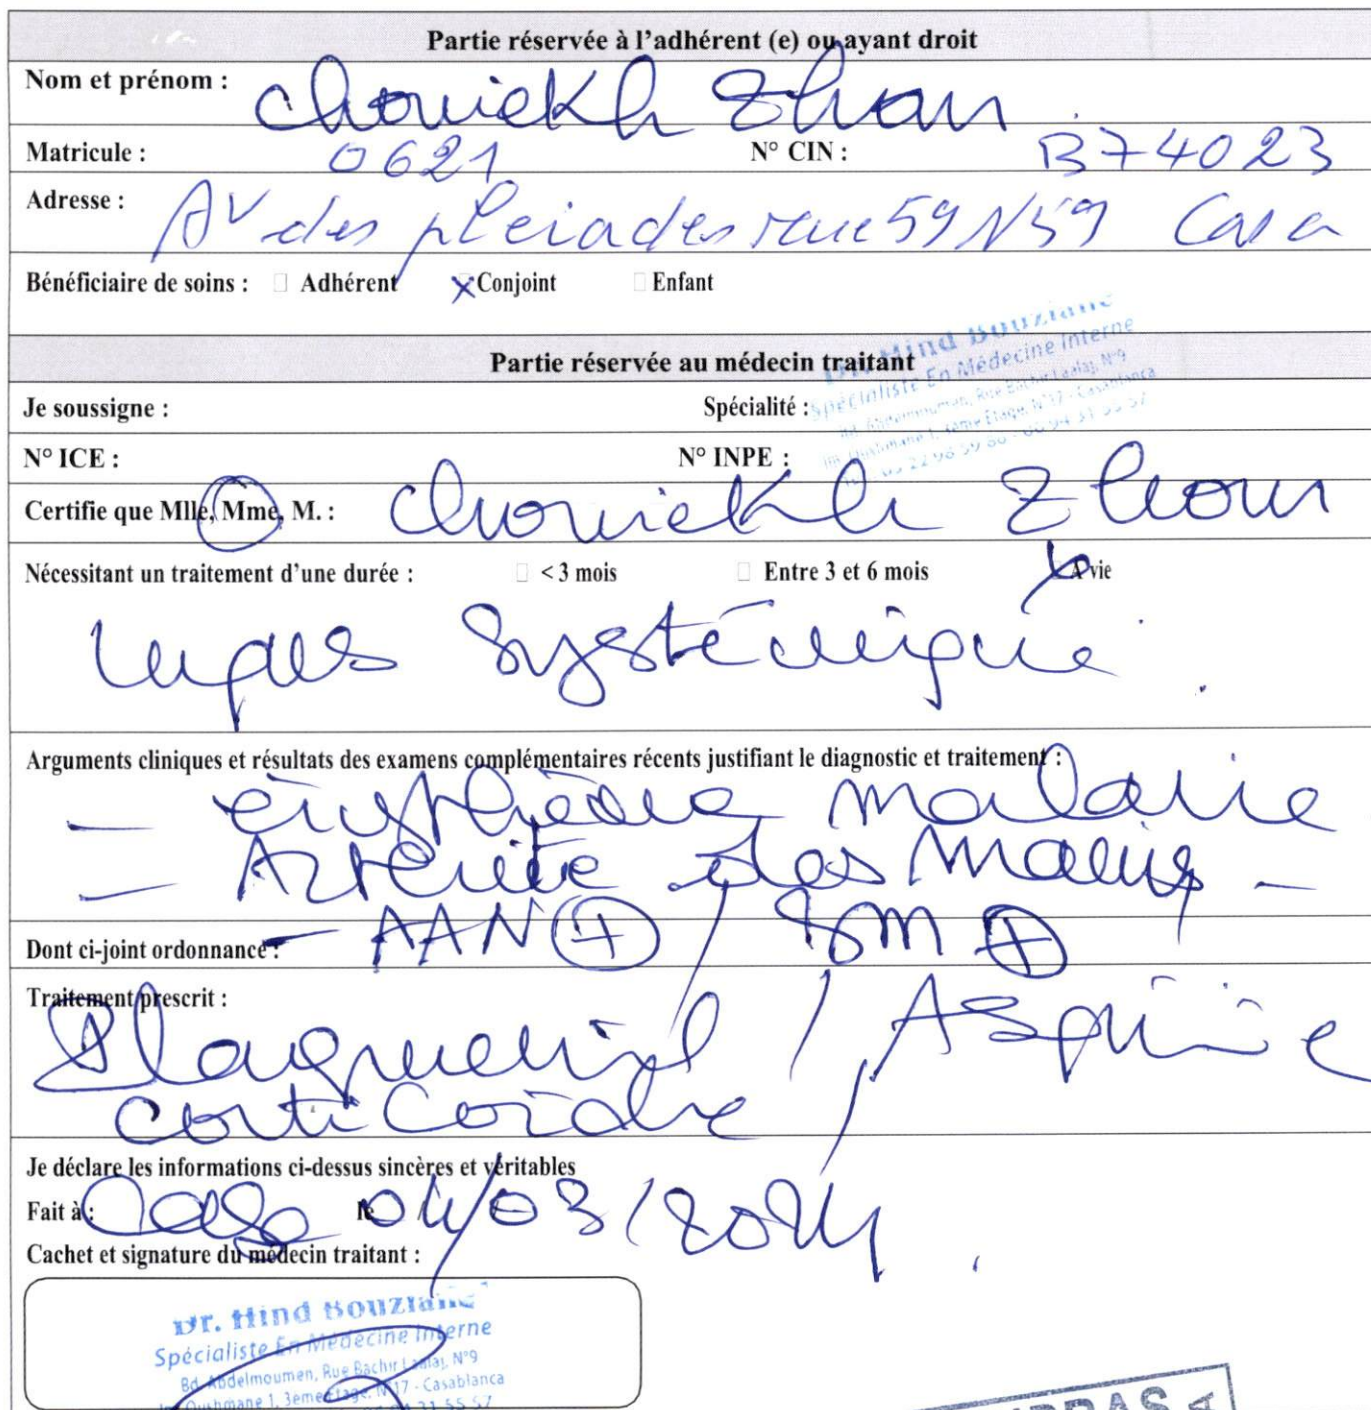 Partie réservée à l'adhérent (e) ou ayant droit
Nom et prénom : Chouiekh Zhour
Matricule : 0621 N° CIN : B74023
Adresse : AV des pleiades rue 59 N59 Casa
Bénéficiaire de soins : Adhérent Conjoint Enfant
Partie réservée au médecin traitant
Dr. Hind Bouziane
Spécialiste En Médecine Interne
Je soussigne : Spécialité :
N° ICE : N° INPE :
Certifie que Mlle, Mme, M. : Chouiekh Zhour
Nécessitant un traitement d'une durée : < 3 mois Entre 3 et 6 mois A vie
lupus Systémique.
Arguments cliniques et résultats des examens complémentaires récents justifiant le diagnostic et traitement :
- érythème malaire
- Arthrite des mains -
Dont ci-joint ordonnance :
- AAN + / SM +
Traitement prescrit :
Plaquenil / Aspirine
corticoide /
Je déclare les informations ci-dessus sincères et véritables
Fait à : Casa le 04/03/2024.
Cachet et signature du médecin traitant :
Dr. Hind Bouziane
Spécialiste En Médecine Interne
Bd. Abdelmoumen, Rue Bachir Laalaj, N°9
3eme Etage, N°17 - Casablanca